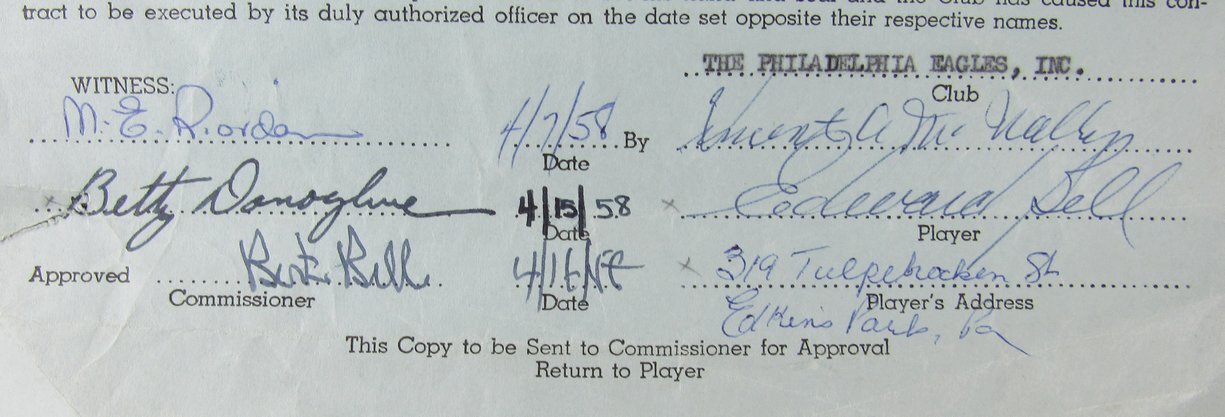 tract to be executed by its duly authorized officer on the date set opposite their respective names.
THE PHILADELPHIA EAGLES, INC.
Club
WITNESS:
M. E. Riordan 4/7/58 By Vincent A Mc Nally
Date
Betty Donoghue 4/15/58 Edward Bell
Date Player
Approved Bert Bell 4/16 319 Tulpehocken St
Commissioner Date Player's Address
Elkins Park, Pa
This Copy to be Sent to Commissioner for Approval
Return to Player